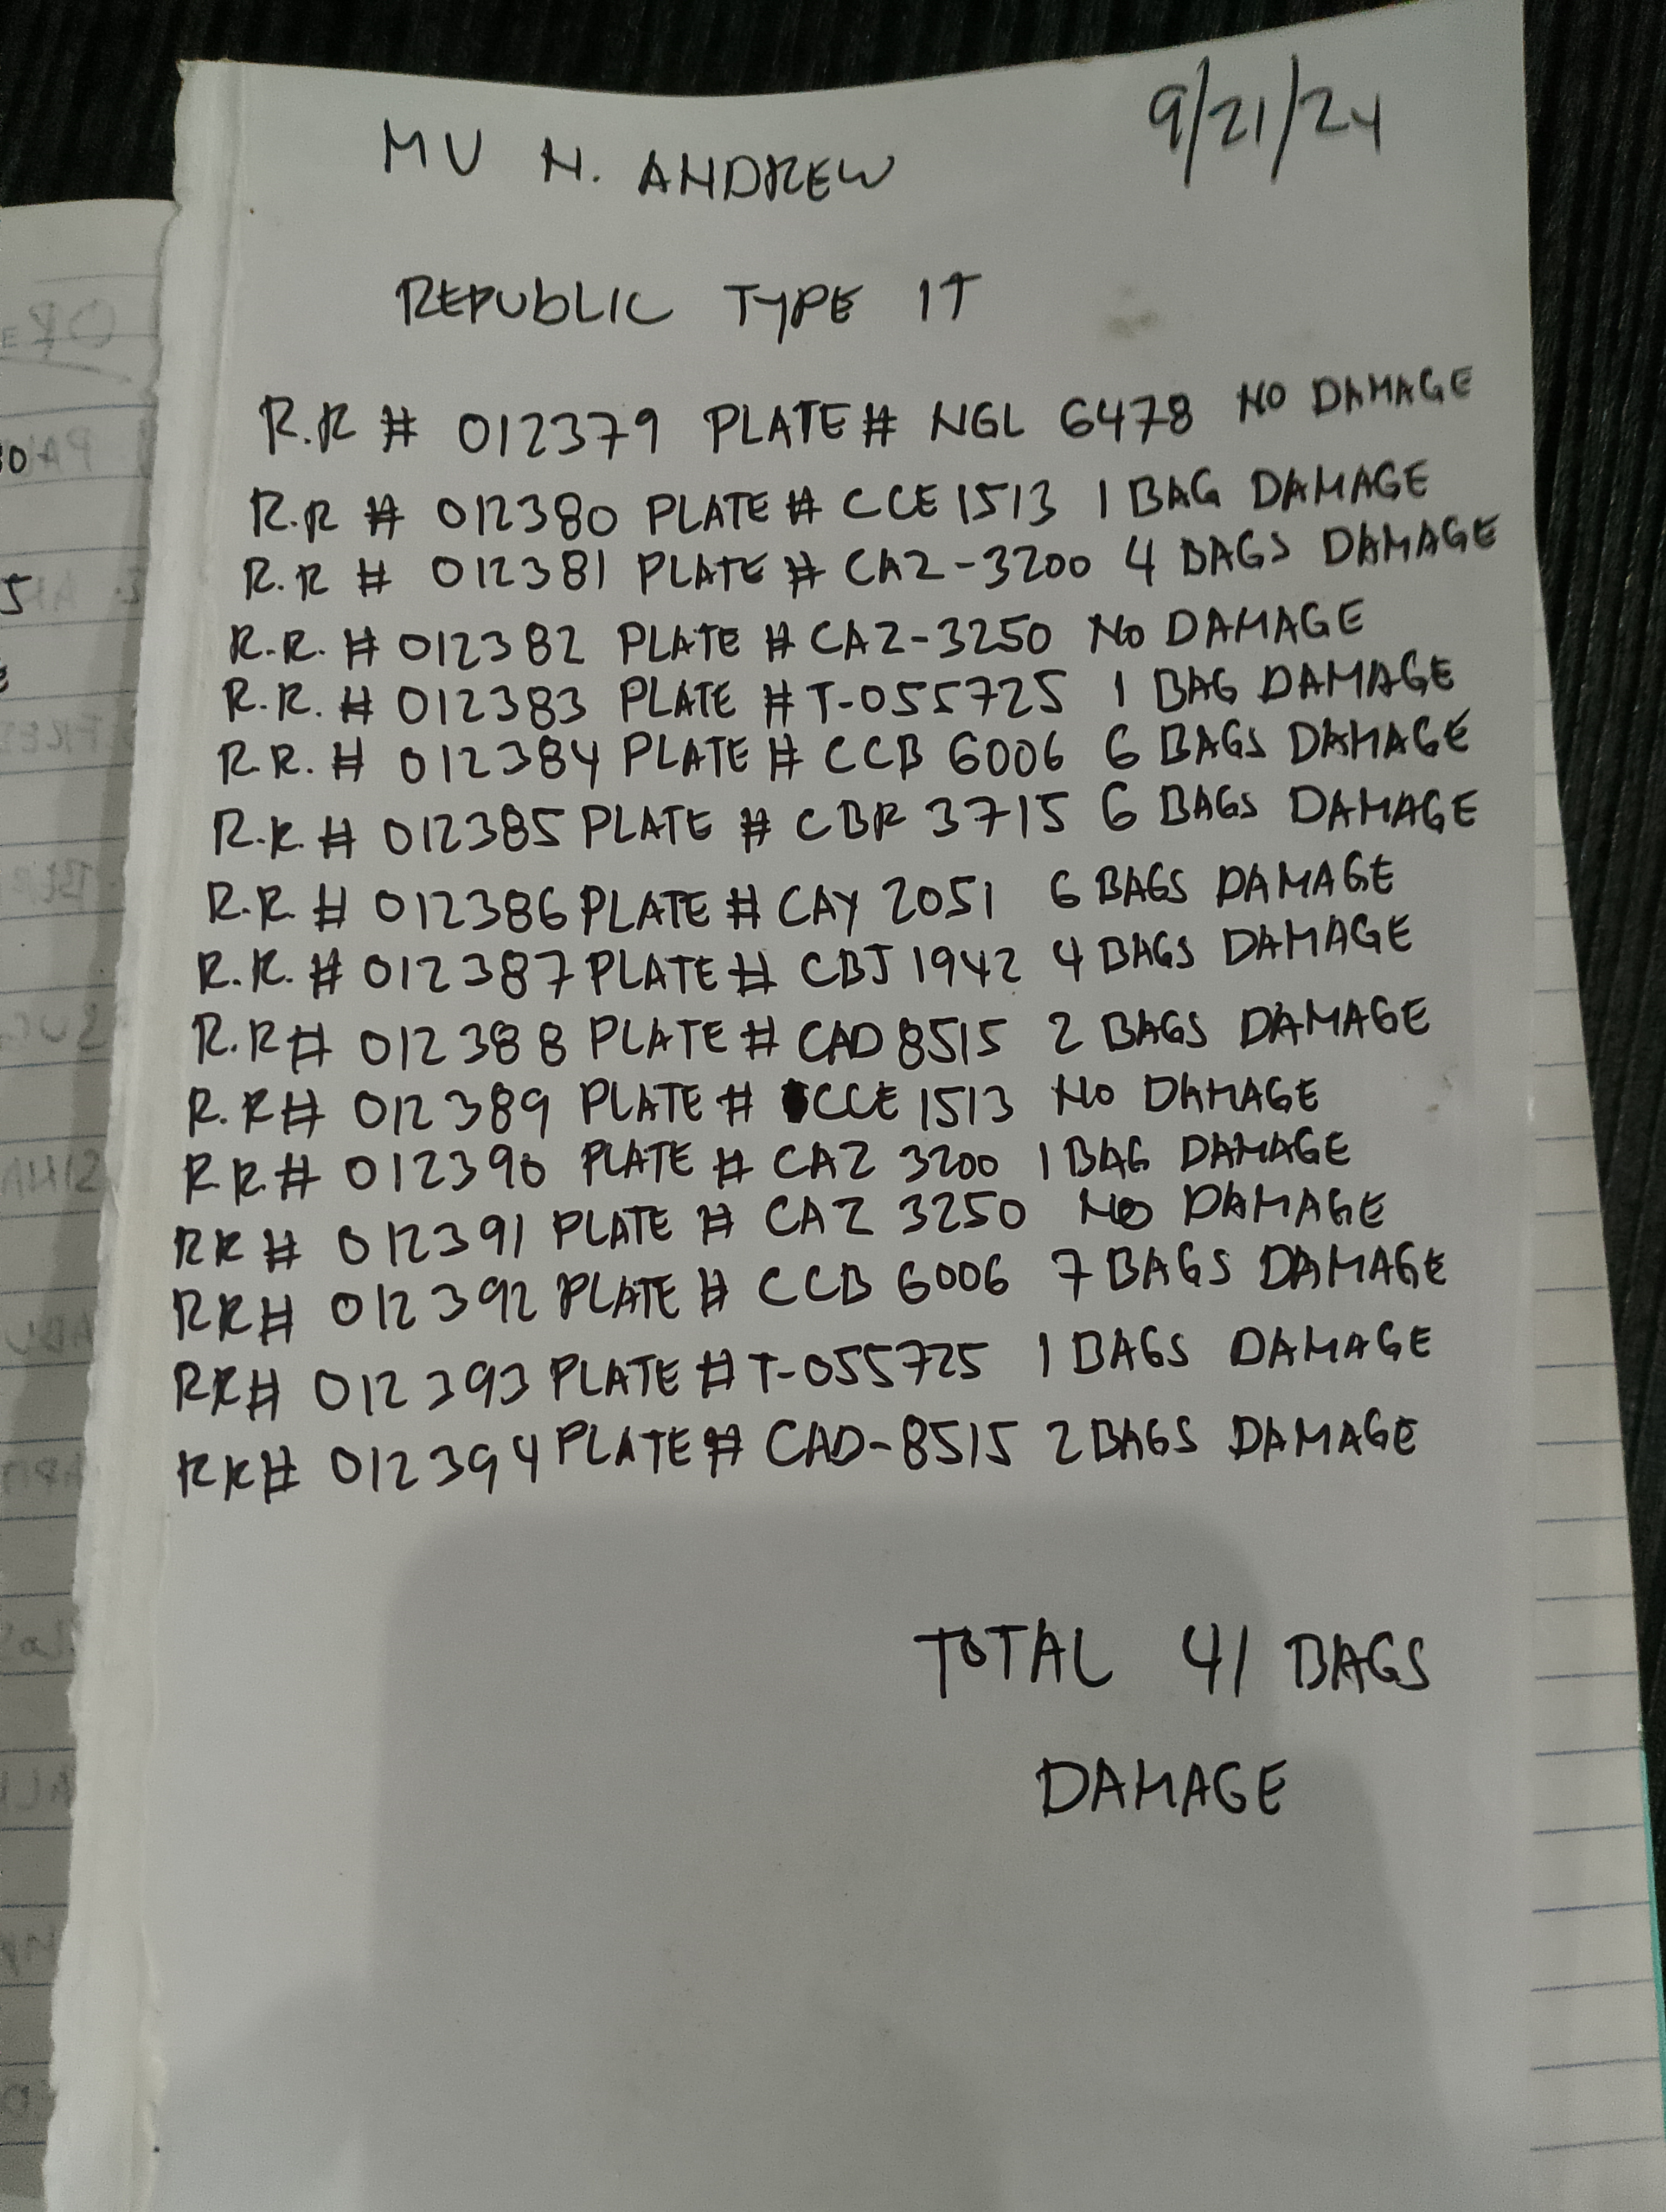 9/21/24
MV N. ANDREW
REPUBLIC TYPE 1T
R.R # 012379 PLATE # NGL 6478 NO DAMAGE
R.R # 012380 PLATE # CCE 1513 1 BAG DAMAGE
R.R # 012381 PLATE # CAZ-3200 4 BAGS DAMAGE
R.R. # 012382 PLATE # CAZ-3250 NO DAMAGE
R.R. # 012383 PLATE # T-055725 1 BAG DAMAGE
R.R. # 012384 PLATE # CCB 6006 6 BAGS DAMAGE
R.R. # 012385 PLATE # CBR 3715 6 BAGS DAMAGE
R.R. # 012386 PLATE # CAY 2051 6 BAGS DAMAGE
R.R. # 012387 PLATE # CBJ 1942 4 BAGS DAMAGE
R.R # 012388 PLATE # CAD 8515 2 BAGS DAMAGE
R.R # 012389 PLATE # CCE 1513 NO DAMAGE
R.R. # 012390 PLATE # CAZ 3200 1 BAG DAMAGE
RR # 012391 PLATE # CAZ 3250 NO DAMAGE
RR # 012392 PLATE # CCB 6006 7 BAGS DAMAGE
RR # 012393 PLATE # T-055725 1 BAGS DAMAGE
RR # 012394 PLATE # CAD-8515 2 BAGS DAMAGE
TOTAL 41 BAGS
DAMAGE